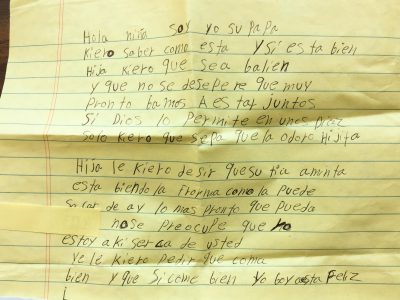 Hola niña soy yo su papa
Kiero saber como esta y si esta bien
Hija Kiero que sea balien
y que no se desepere que muy
Pronto bamos A estar juntos
Si Dios lo Permite en unos Diaz
Solo Kiero que sepa que la adoro Hijita
Hija le Kiero desir que su tia aminta
esta biendo la Frorma como la puede
sacar de ay lo mas pronto que pueda
nose preocupe que yo
estoy aki serca de usted
y le Kiero Pedir que coma
bien y que si come bien yo boy a sta Feliz